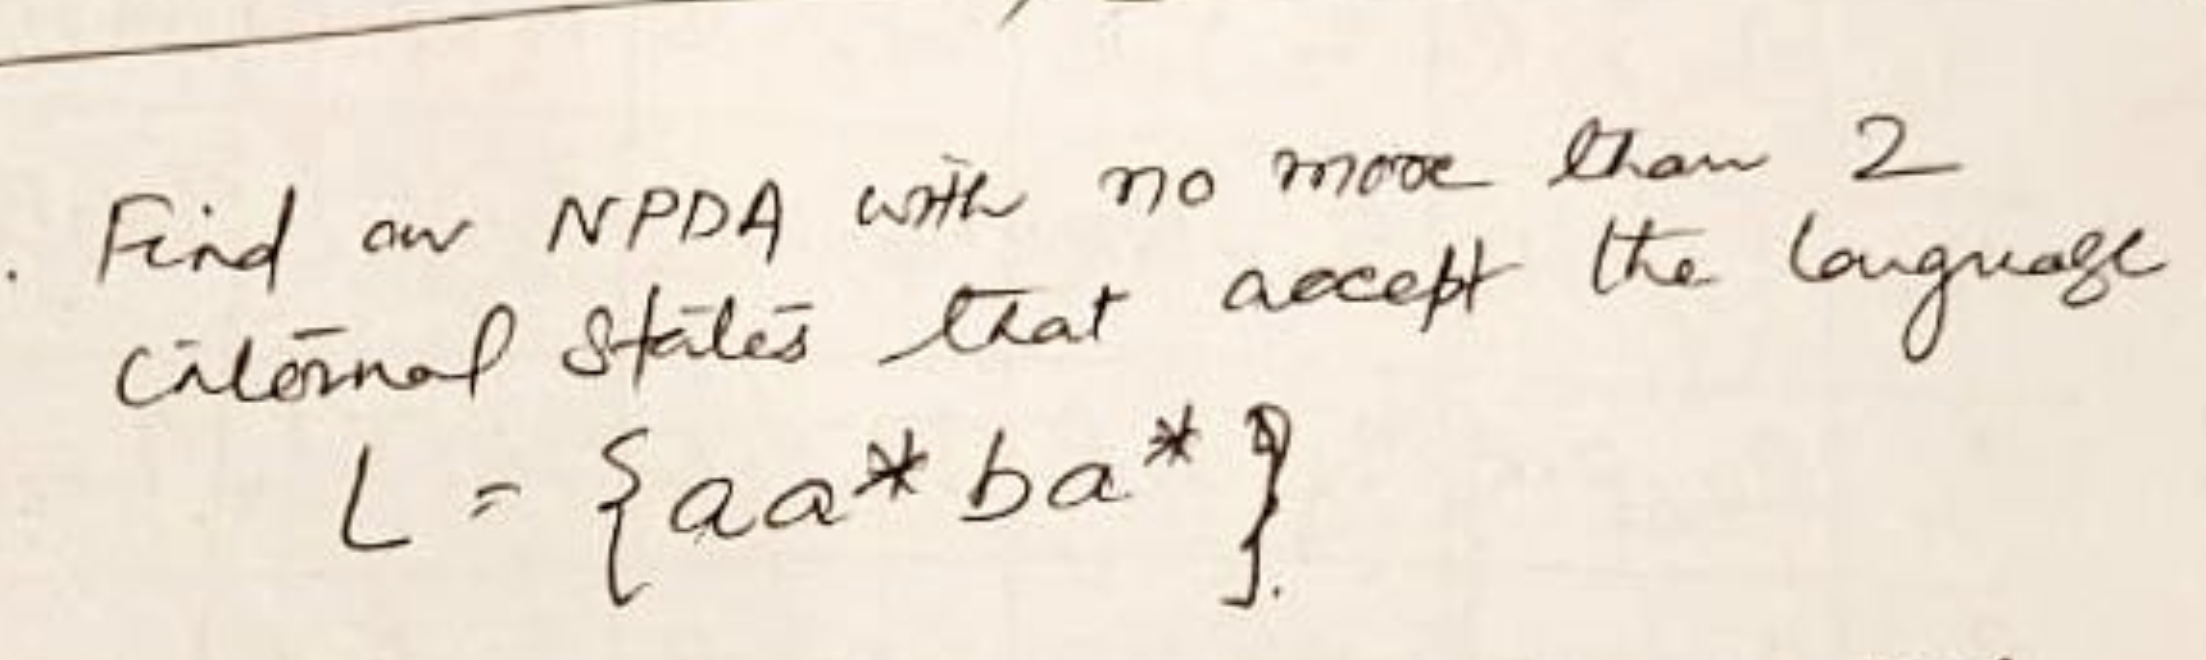 . Find an NPDA with no more than 2
internal states that accept the language
L = {aa*ba*}.